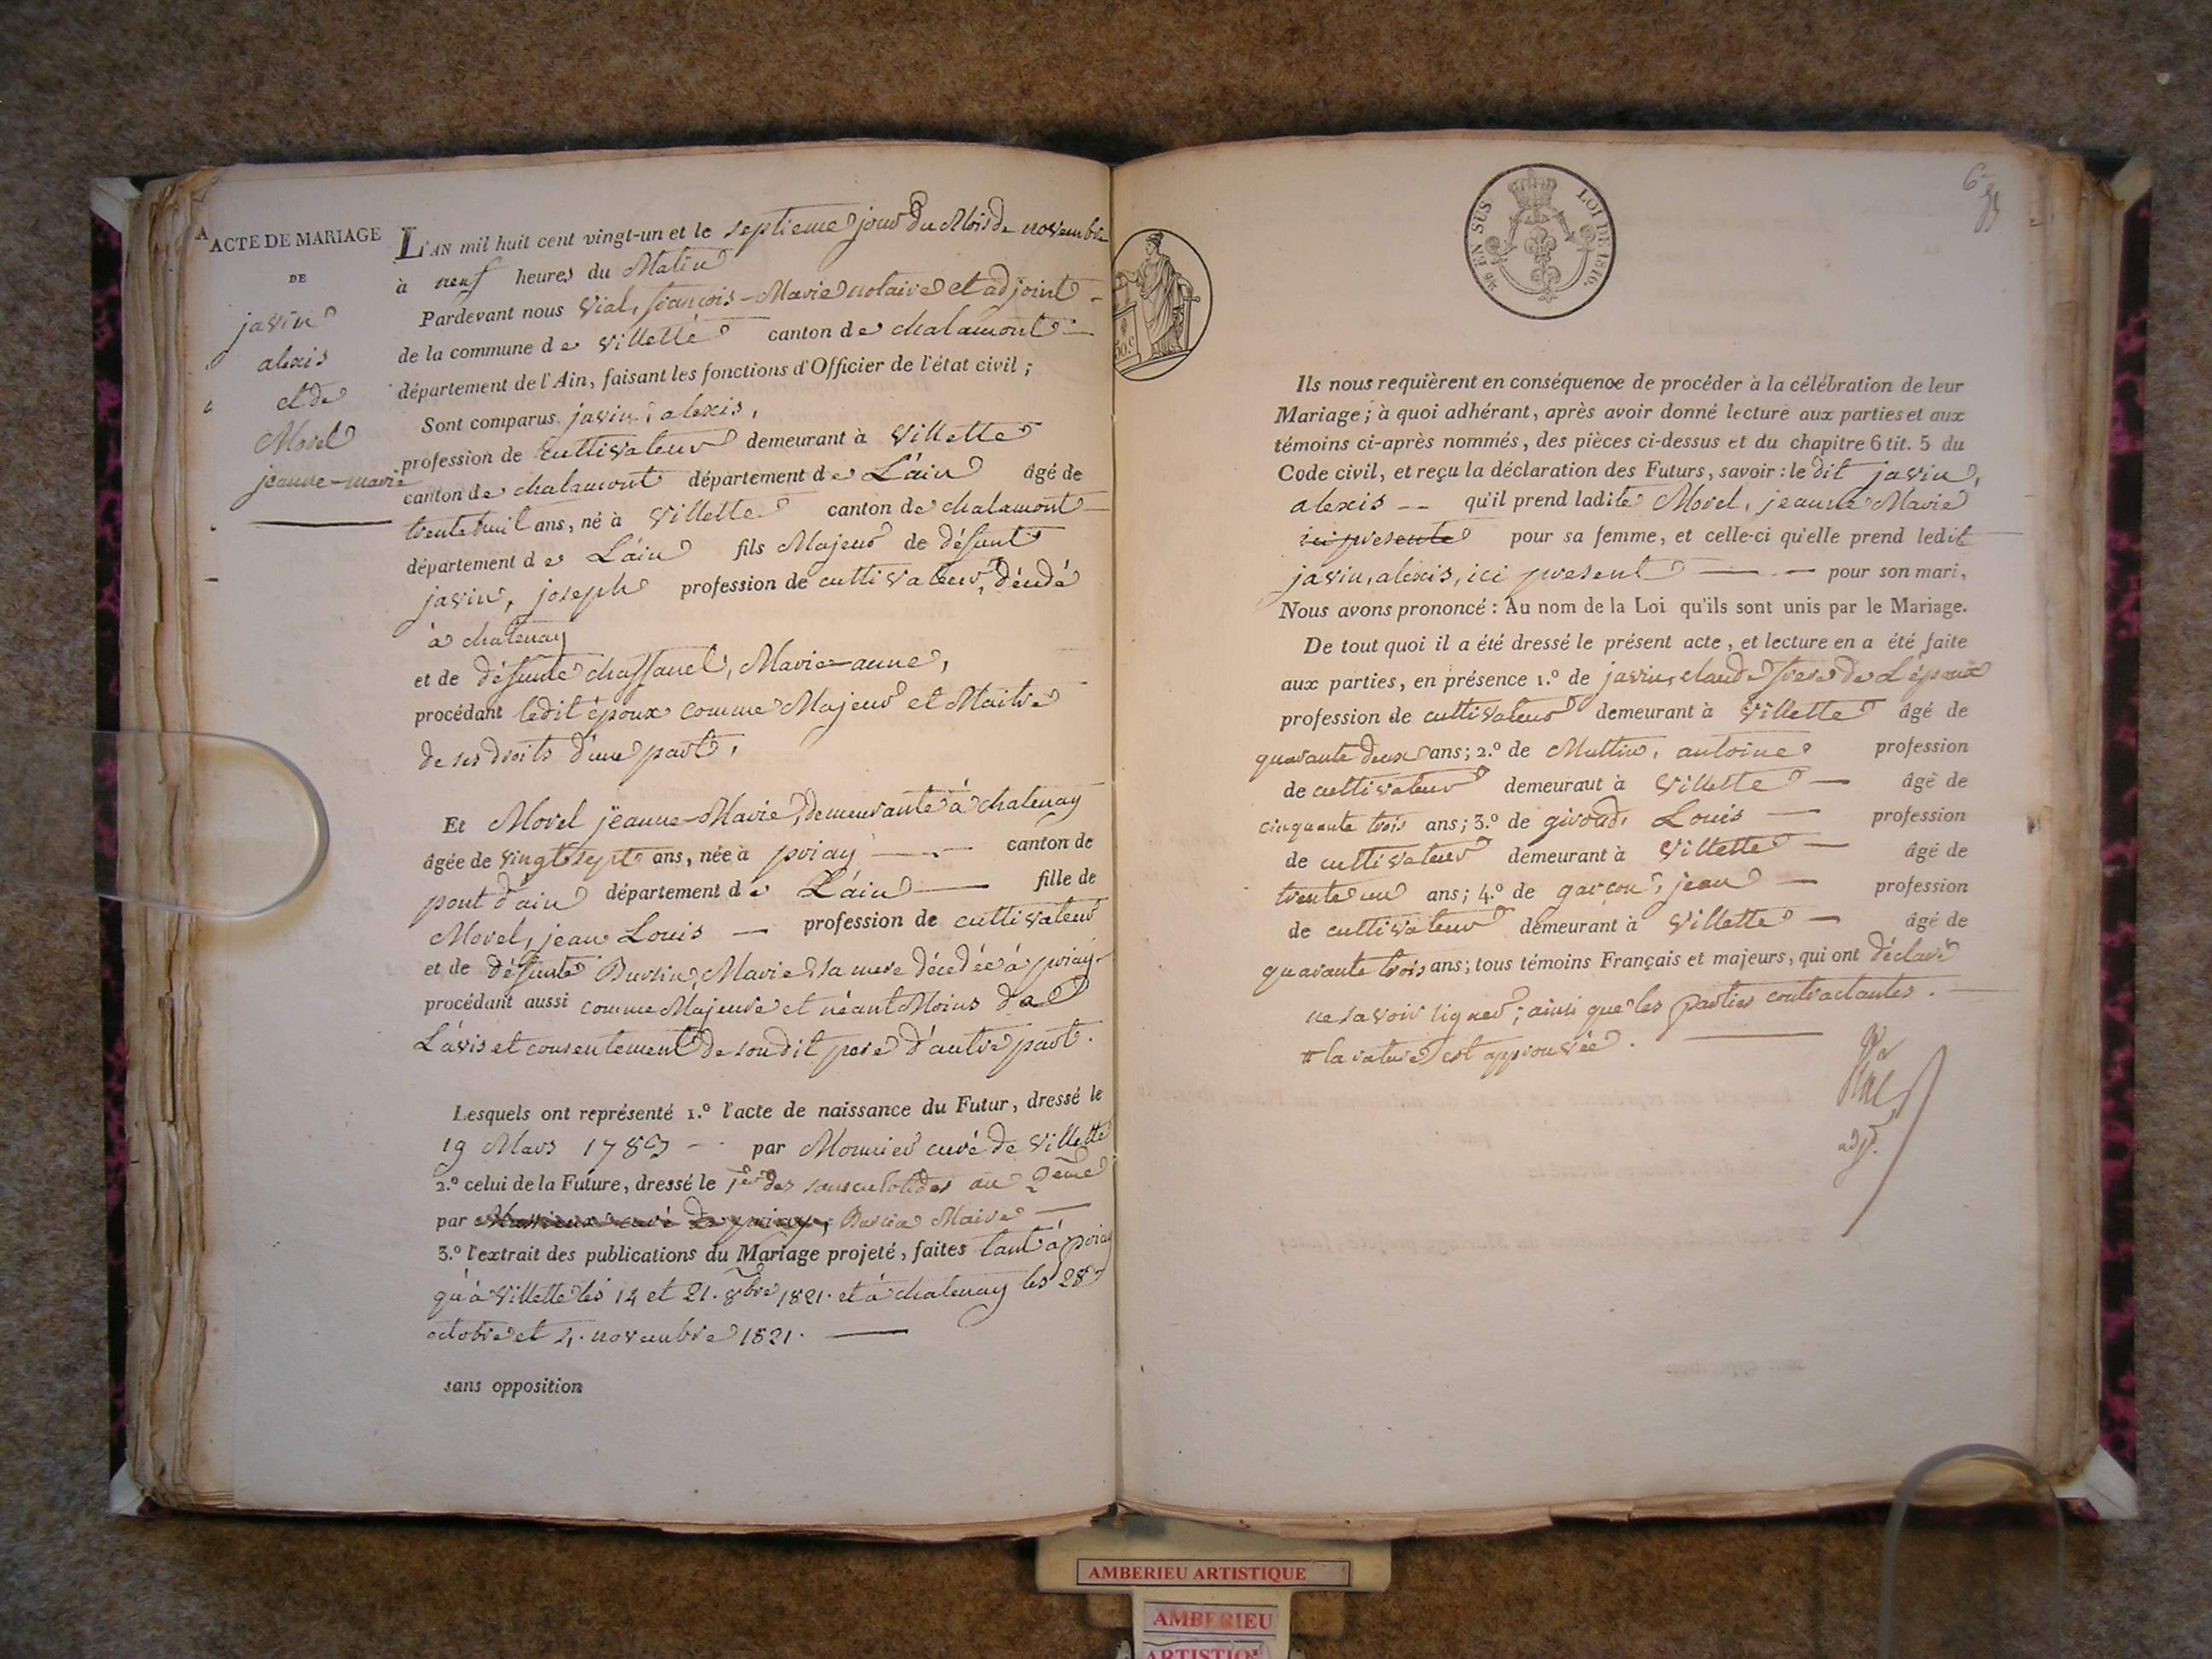 ACTE DE MARIAGE
DE
javin
alexis
et de
Morel
jeanne-marie
L'AN mil huit cent vingt-un et le septieme jour du Mois de novembre
à neuf heures du Matin
Pardevant nous Vial, françois-Marie notaire et adjoint
de la commune de Villette canton de chalamont
département de l'Ain, faisant les fonctions d'Officier de l'état civil ;
Sont comparus javin, alexis,
profession de cultivateur demeurant à Villette
canton de chalamont département de L'ain âgé de
trente huit ans, né à Villette canton de chalamont
département de L'ain fils Majeur de défunt
javin, joseph profession de cultivateur, décédé
à chatenay
et de défunte chassanel, Marie-anne,
procédant ledit époux comme Majeur et Maitre
de ses droits d'une part,
Et Morel jeanne-Marie, demeurante à chatenay
âgée de vingt sept ans, née à priay canton de
pont d'ain département de L'ain fille de
Morel, jean Louis — profession de cultivateur
et de défunte Marie, sa mere décedée à priay
procédant aussi comme Majeure et néant Moins de
L'avis et consentement de son dit pere d'autre part.
Lesquels ont représenté 1.º l'acte de naissance du Futur, dressé le
19 Mars 1783 par Monnier curé de Villette
2.º celui de la Future, dressé le 1er des sansculotides an 2eme
par Maire
3.º l'extrait des publications du Mariage projeté, faites tant à priay
qu'à Villette les 14 et 21. 8bre 1821. et à chatenay les 28
octobre et 4. novembre 1821.
sans opposition
EN SUS
LOI DE 1816.
50.c
Ils nous requièrent en conséquence de procéder à la célébration de leur
Mariage ; à quoi adhérant, après avoir donné lecture aux parties et aux
témoins ci-après nommés, des pièces ci-dessus et du chapitre 6 tit. 5 du
Code civil, et reçu la déclaration des Futurs, savoir : le dit javin,
alexis -- qu'il prend ladite Morel, jeanne Marie
ici presente pour sa femme, et celle-ci qu'elle prend ledit
javin, alexis, ici present pour son mari,
Nous avons prononcé : Au nom de la Loi qu'ils sont unis par le Mariage.
De tout quoi il a été dressé le présent acte, et lecture en a été faite
aux parties, en présence 1.º de javin, claude frere de L'époux
profession de cultivateur demeurant à Villette âgé de
quarante deux ans ; 2.º de antoine profession
de cultivateur demeurant à Villette — âgé de
cinquante trois ans ; 3.º de giroud, Louis — profession
de cultivateur demeurant à Villette — âgé de
trente un ans ; 4.º de garçon, jean — profession
de cultivateur demeurant à Villette — âgé de
quarante trois ans ; tous témoins Français et majeurs, qui ont déclaré
ne savoir signer ; ainsi que les parties contractantes.
# la rature est approuvée.
Vial
adjt.
AMBERIEU ARTISTIQUE
AMBERIEU
ARTISTIQUE